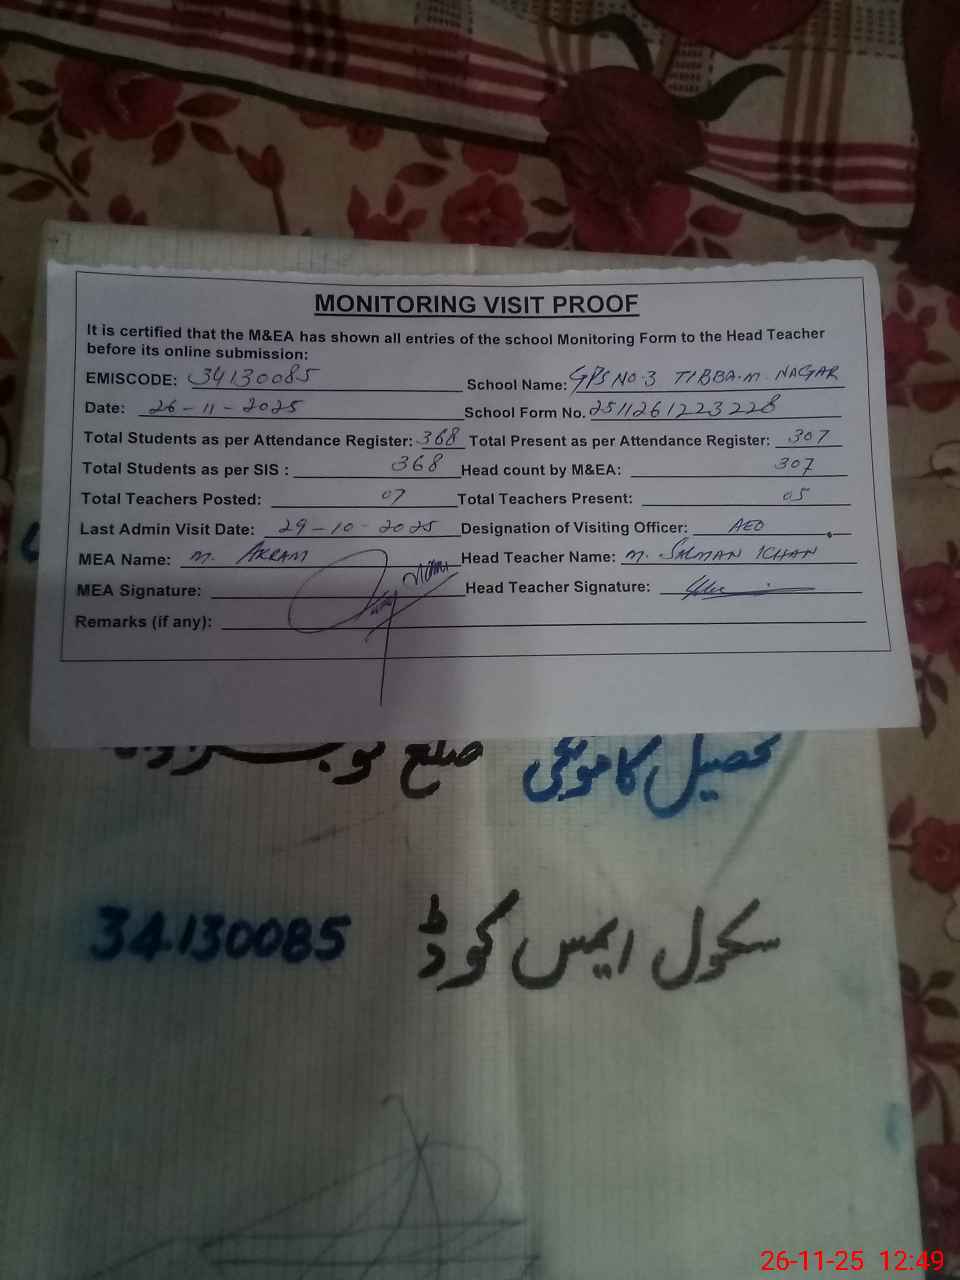 MONITORING VISIT PROOF
It is certified that the M&EA has shown all entries of the school Monitoring Form to the Head Teacher
before its online submission:
EMISCODE: 34130085 School Name: GPS NO.3 TIBBA.M.NAGAR
Date: 26-11-2025 School Form No. 251126122 3228
Total Students as per Attendance Register: 368 Total Present as per Attendance Register: 307
Total Students as per SIS : 368 Head count by M&EA: 307
Total Teachers Posted: 07 Total Teachers Present: 05
Last Admin Visit Date: 29-10-2025 Designation of Visiting Officer: AEO
MEA Name: M. AKRAM Head Teacher Name: M. SALMAN KHAN
MEA Signature: Head Teacher Signature:
Remarks (if any):
تحصیل کامونکی ضلع گوجرانوالہ
سکول ایمس کوڈ 34130085
26-11-25 12:49